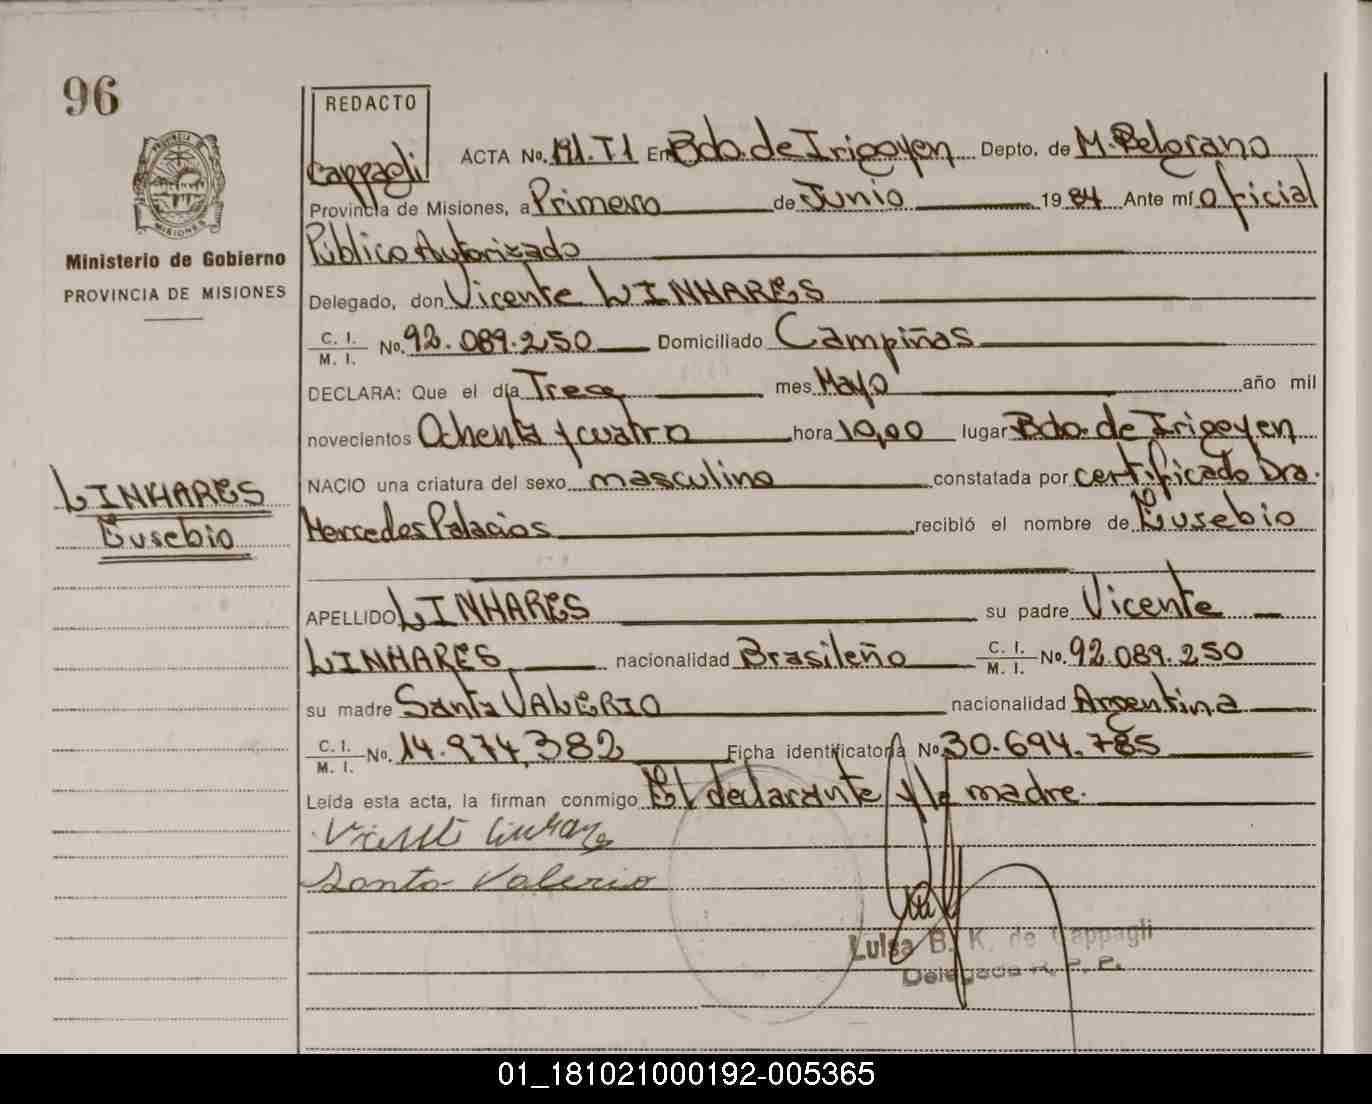 96
REDACTO
Cappagli
ACTA No. 191.T1 En Bdo. de Irigoyen Depto. de M. Belgrano
Provincia de Misiones, a Primero de Junio 1984 Ante mí Oficial
Público Autorizado
Delegado, don Vicente LINHARES
C. I.
M. I. No. 92.089.250 Domiciliado Campiñas
DECLARA: Que el día Trece mes Mayo año mil
novecientos Ochenta y cuatro hora 10,00 lugar Bdo. de Irigoyen
NACIO una criatura del sexo masculino constatada por certificado Dra.
Mercedes Palacios recibió el nombre de Eusebio
APELLIDO LINHARES su padre Vicente
LINHARES nacionalidad Brasileño C. I. M. I. No. 92.089.250
su madre Santa VALERIO nacionalidad Argentina
C. I.
M. I. No. 14.974,382 Ficha identificatoria No. 30.694.785
Leída esta acta, la firman conmigo El declarante y la madre.
Santa Valerio
Luisa B. K. de Cappagli
Delegada R. P. P.
PROVINCIA DE
MISIONES
Ministerio de Gobierno
PROVINCIA DE MISIONES
LINHARES
Eusebio
01_181021000192-005365